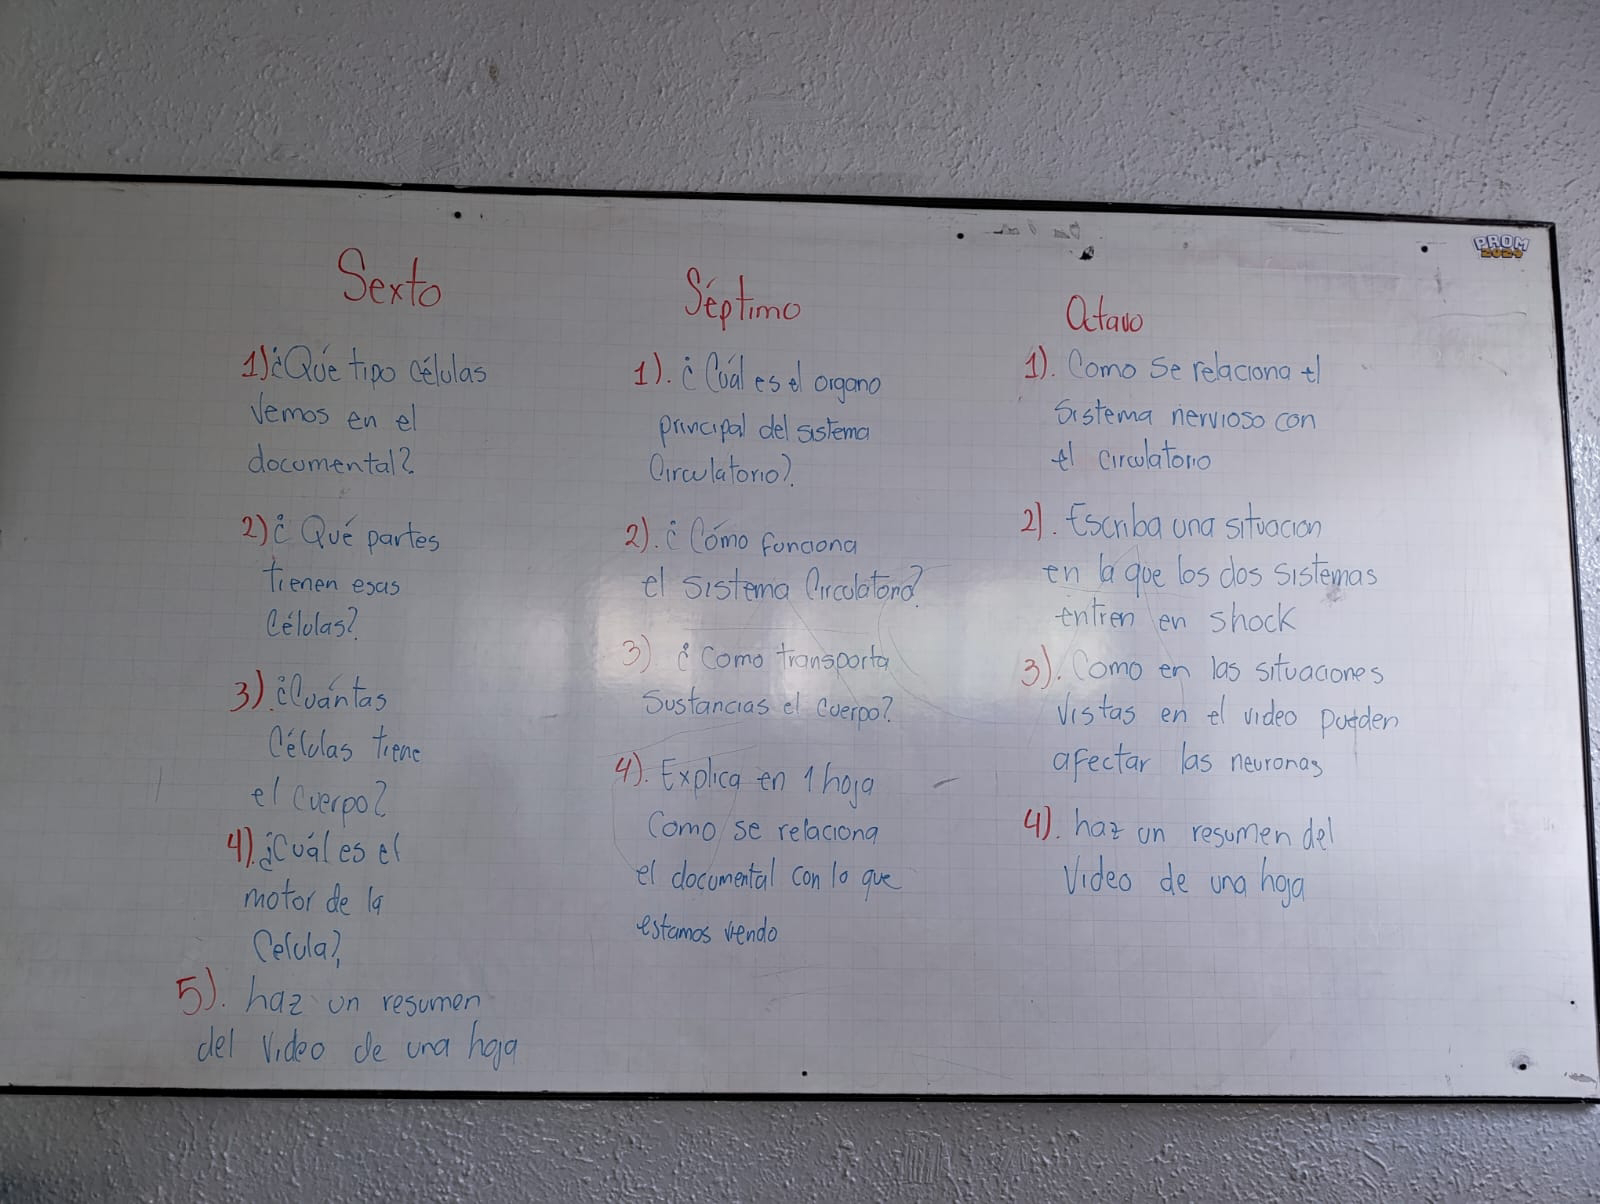 Sexto
1) ¿Qué tipo células
vemos en el
documental?
2) ¿Qué partes
tienen esas
Células?
3). ¿Cuántas
Células tiene
el cuerpo?
4). ¿Cuál es el
motor de la
Celula?
5). haz un resumen
del video de una hoja
Séptimo
1). ¿Cuál es el organo
principal del sistema
Circulatorio?.
2). ¿Cómo funciona
el sistema Circulatorio?
3) ¿Como transporta
Sustancias el cuerpo?
4). Explica en 1 hoja
Como se relaciona
el documental con lo que
estamos viendo
Octavo
1). Como se relaciona el
Sistema nervioso con
el circulatorio
2). Escriba una situacion
en la que los dos sistemas
entren en shock
3). Como en las situaciones
vistas en el video pueden
afectar las neuronas
4). haz un resumen del
Video de una hoja
PROM
2024